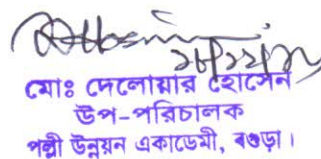 মোঃ দেলোয়ার হোসেন
উপ-পরিচালক
পল্লী উন্নয়ন একাডেমী, বগুড়া।